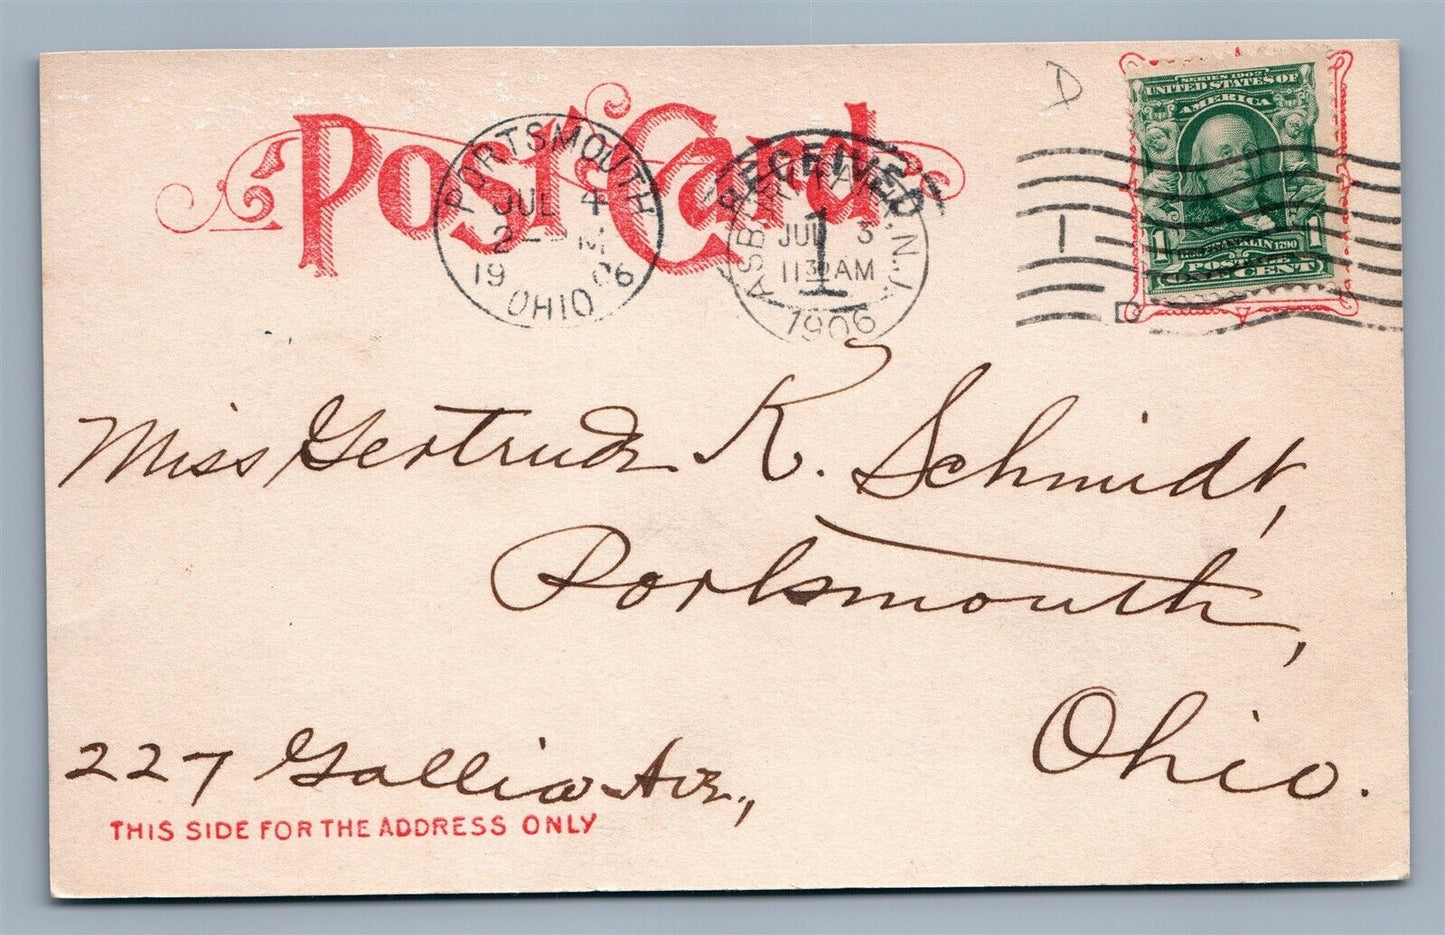 D
SERIES 1902
UNITED STATES OF
AMERICA
FRANKLIN 1790
1 1
POSTAGE
ONE CENT
Post Card
PORTSMOUTH
JUL 4
2 - M
1906
OHIO
RECEIVED
1
ASBURY PARK, N.J.
JUL 3
11 30 AM
1906
1
Miss Gertrude K. Schmidt,
Portsmouth,
Ohio.
227 Gallia Ave.,
THIS SIDE FOR THE ADDRESS ONLY